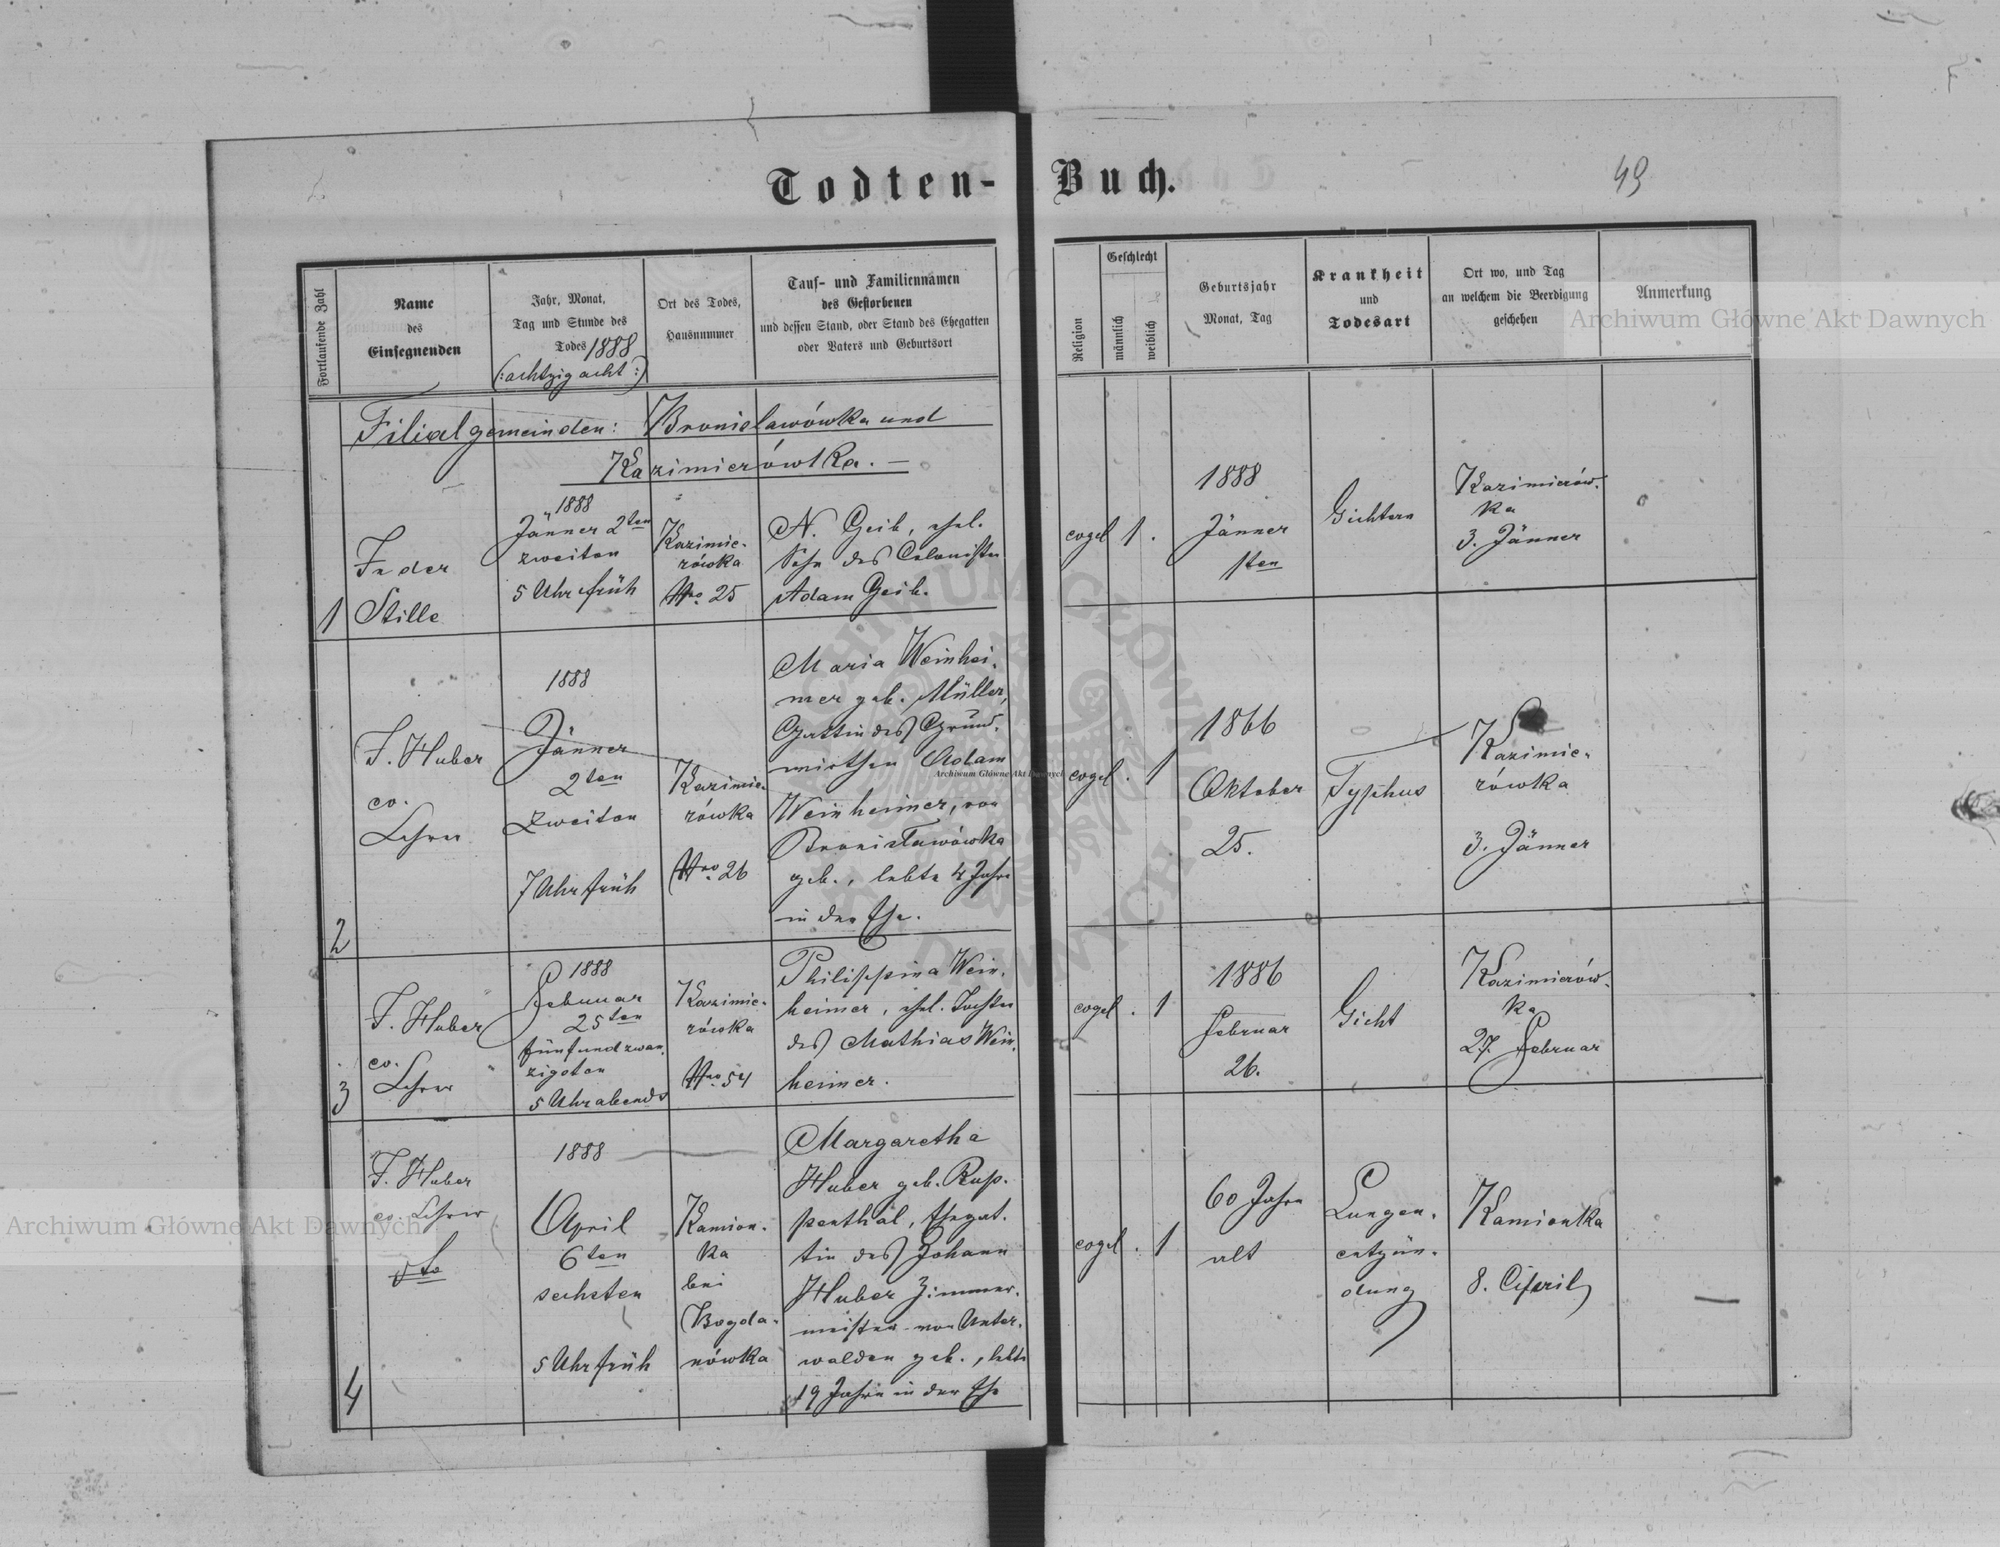 Todten-Buch.
49
Fortlaufende Zahl
Name
des
Einsegnenden
Jahr, Monat,
Tag und Stunde des
Todes 1888
(:achtzig acht:)
Ort des Todes,
Hausnummer
Tauf- und Familiennamen
des Gestorbenen
und dessen Stand, oder Stand des Ehegatten
oder Vaters und Geburtsort
Religion
Geschlecht
männlich
weiblich
Geburtsjahr
Monat, Tag
Krankheit
und
Todesart
Ort wo, und Tag
an welchem die Beerdigung
geschehen
Anmerkung
Filialgemeinden: Bronislawówka und
Kazimierówka. —
1
In der
Stille
1888
Jänner 2ten
zweiten
5 Uhr früh
Kazimie-
rówka
Nro. 25
N. Geib, ehel.
Sohn des Colonisten
Adam Geib.
evgel
1 .
1888
Jänner
1ten
Gichtern
Kazimierów-
ka
3. Jänner
2
F. Huber
ev.
Lehrer
1888
Jänner
2ten
Zweiten
7 Uhr früh
Kazimie-
rówka
Nro. 26
Maria Weinhei-
mer geb. Müller,
Gattin des Grund-
wirthen Adam
Weinheimer, von
Bronislawówka
geb., lebte 4 Jahre
in der Ehe.
evgel
. 1
1866
Oktober
25.
Typhus
Kazimie-
rówka
3. Jänner
3
F. Huber
ev.
Lehrer
1888
Februar
25ten
fünfundzwan-
zigsten
5 Uhr abends
Kazimie-
rówka
Nro. 54
Philippina Wein-
heimer, ehel. Tochter
des Mathias Wein-
heimer.
evgel
. 1
1886
Februar
26.
Gicht
Kazimierów-
ka
27. Februar
4
F. Huber
ev. Lehrer
dto
1888
April
6ten
sechsten
5 Uhr früh
Kamion-
ka
bei
Bogda-
nówka
Margaretha
Huber geb. Rup-
penthal, Ehegat-
tin des Johann
Huber Zimmer-
meister von Unter-
walden geb., lebte
19 Jahre in der Ehe
evgel
. 1
60 Jahre
alt
Lungen-
entzün-
dung
Kamionka
8. April
Archiwum Główne Akt Dawnych
Archiwum Główne Akt Dawnych
Archiwum Główne Akt Dawnych
ARCHIWUM GŁÓWNE AKT DAWNYCH